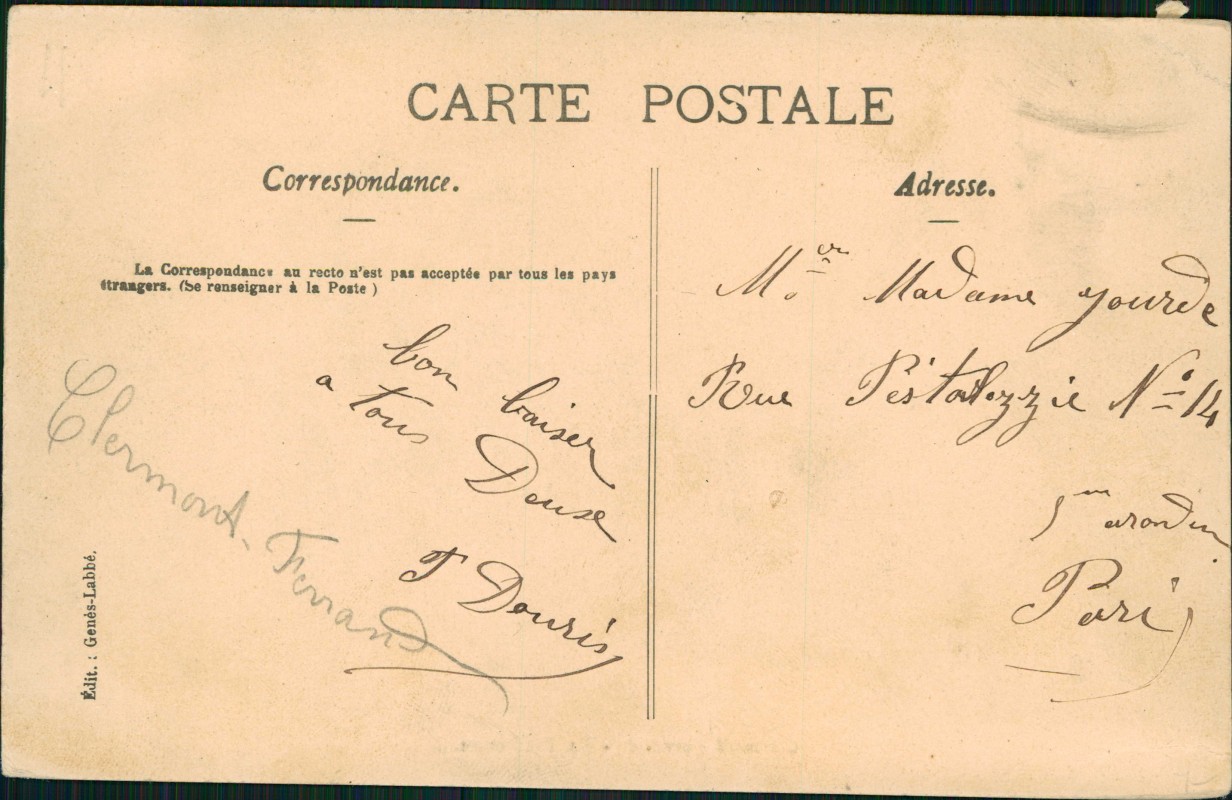 CARTE POSTALE
Correspondance.
La Correspondance au recto n'est pas acceptée par tous les pays
étrangers. (Se renseigner à la Poste )
bon baiser
a tous
Douse
F Douris
Clermont-Ferrand
Édit. : Genès-Labbé.
Adresse.
M. er Madame yourde
Rue Péstalozzie No 14
5 em arondin
Paris